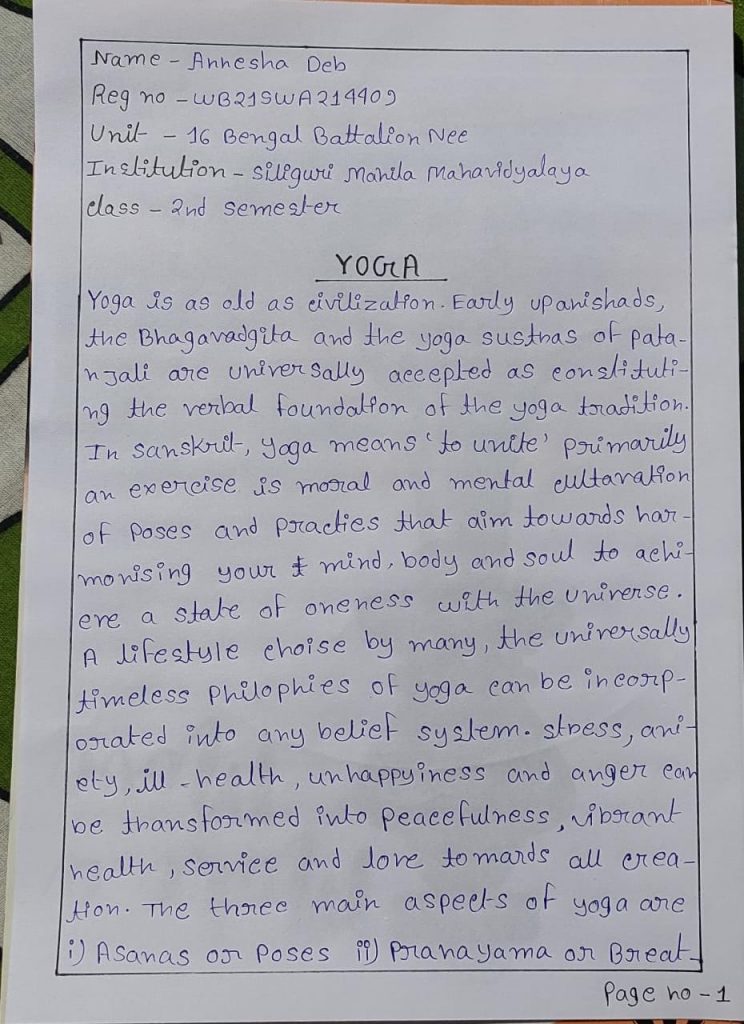 Name - Annesha Deb
Reg no - WB21SWA214409
Unit - 16 Bengal Battalion Nee
Institution - Siliguri Mahila Mahavidyalaya
class - 2nd semester
YOGA
Yoga is as old as civilization. Early upanishads,
the Bhagavadgita and the yoga sustras of pata-
njali are universally accepted as constituti-
ng the verbal foundation of the yoga tradition.
In sanskrit, yoga means 'to unite' primarily
an exercise is moral and mental cultavation
of poses and practies that aim towards har-
monising your mind, body and soul to achi-
eve a state of oneness with the universe.
A lifestyle choise by many, the universally
timeless Philophies of yoga can be incorp-
orated into any belief system. stress, ani-
ety, ill - health, unhappyiness and anger can
be transformed into peacefulness, vibrant
health, service and love towards all crea-
tion. The three main aspects of yoga are
i) Asanas or Poses ii) Pranayama or Breat-
Page no - 1